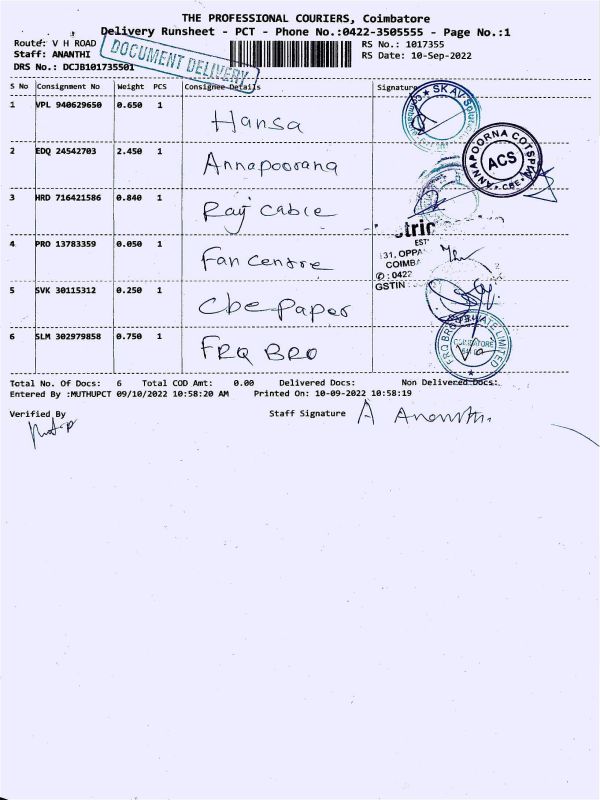 THE PROFESSIONAL COURIERS, Coimbatore
Delivery Runsheet - PCT - Phone No.:0422-3505555 - Page No.:1
Route: V H ROAD
Staff: ANANTHI
DRS No.: DCJB101735501
DOCUMENT DELIVERY
RS No.: 1017355
RS Date: 10-Sep-2022
S No Consignment No Weight PCS Consignee Details Signature
1 VPL 940629650 0.650 1 Hansa
SKAV
2 EDQ 24542703 2.450 1 Annapoorana
ANNAPOORNA COTSPIN ACS CBE
3 HRD 716421586 0.840 1 Raj Cable
tric
EST
131, OPPA
COIMBA
4 PRO 13783359 0.050 1 Fan centre
✆ : 0422
GSTIN
5 SVK 30115312 0.250 1 cbe paper
6 SLM 302979858 0.750 1 FRQ BRO
FRQ BRO PRIVATE LIMITED COIMBATORE
Total No. Of Docs: 6 Total COD Amt: 0.00 Delivered Docs: Non Delivered Docs:
Entered By :MUTHUPCT 09/10/2022 10:58:20 AM Printed On: 10-09-2022 10:58:19
Verified By Staff Signature A Ananthi